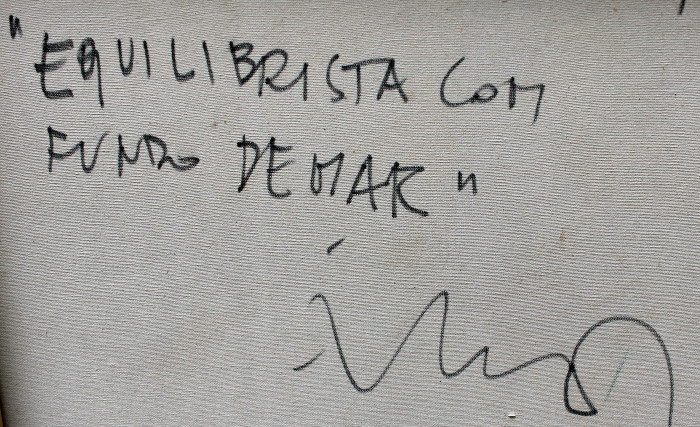 "EQUILIBRISTA COM
FUNDO DE MAR"